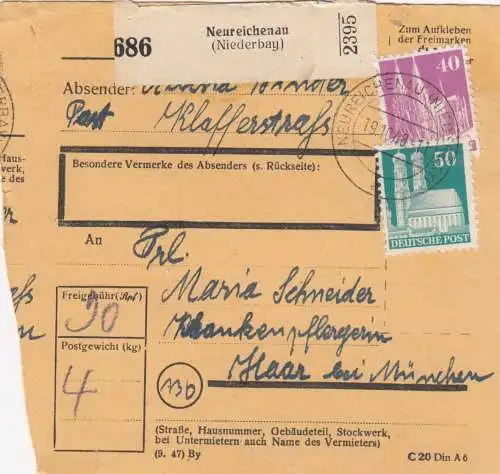 Neureichenau
(Niederbay)
2395
686
Zum Aufkleben
der Freimarken
Absender:
Post Klafferstraß
40
NEUREICHENAU
50
DEUTSCHE POST
Haus-
werk,
e des
Besondere Vermerke des Absenders (s. Rückseite):
An Frl.
Maria Schneider
Krankenpflegerin
Haar bei München
Freigebühr
90
Postgewicht (kg)
4
13b
(Straße, Hausnummer, Gebäudeteil, Stockwerk,
bei Untermietern auch Name des Vermieters)
(9. 47) By
C 20 Din A 6